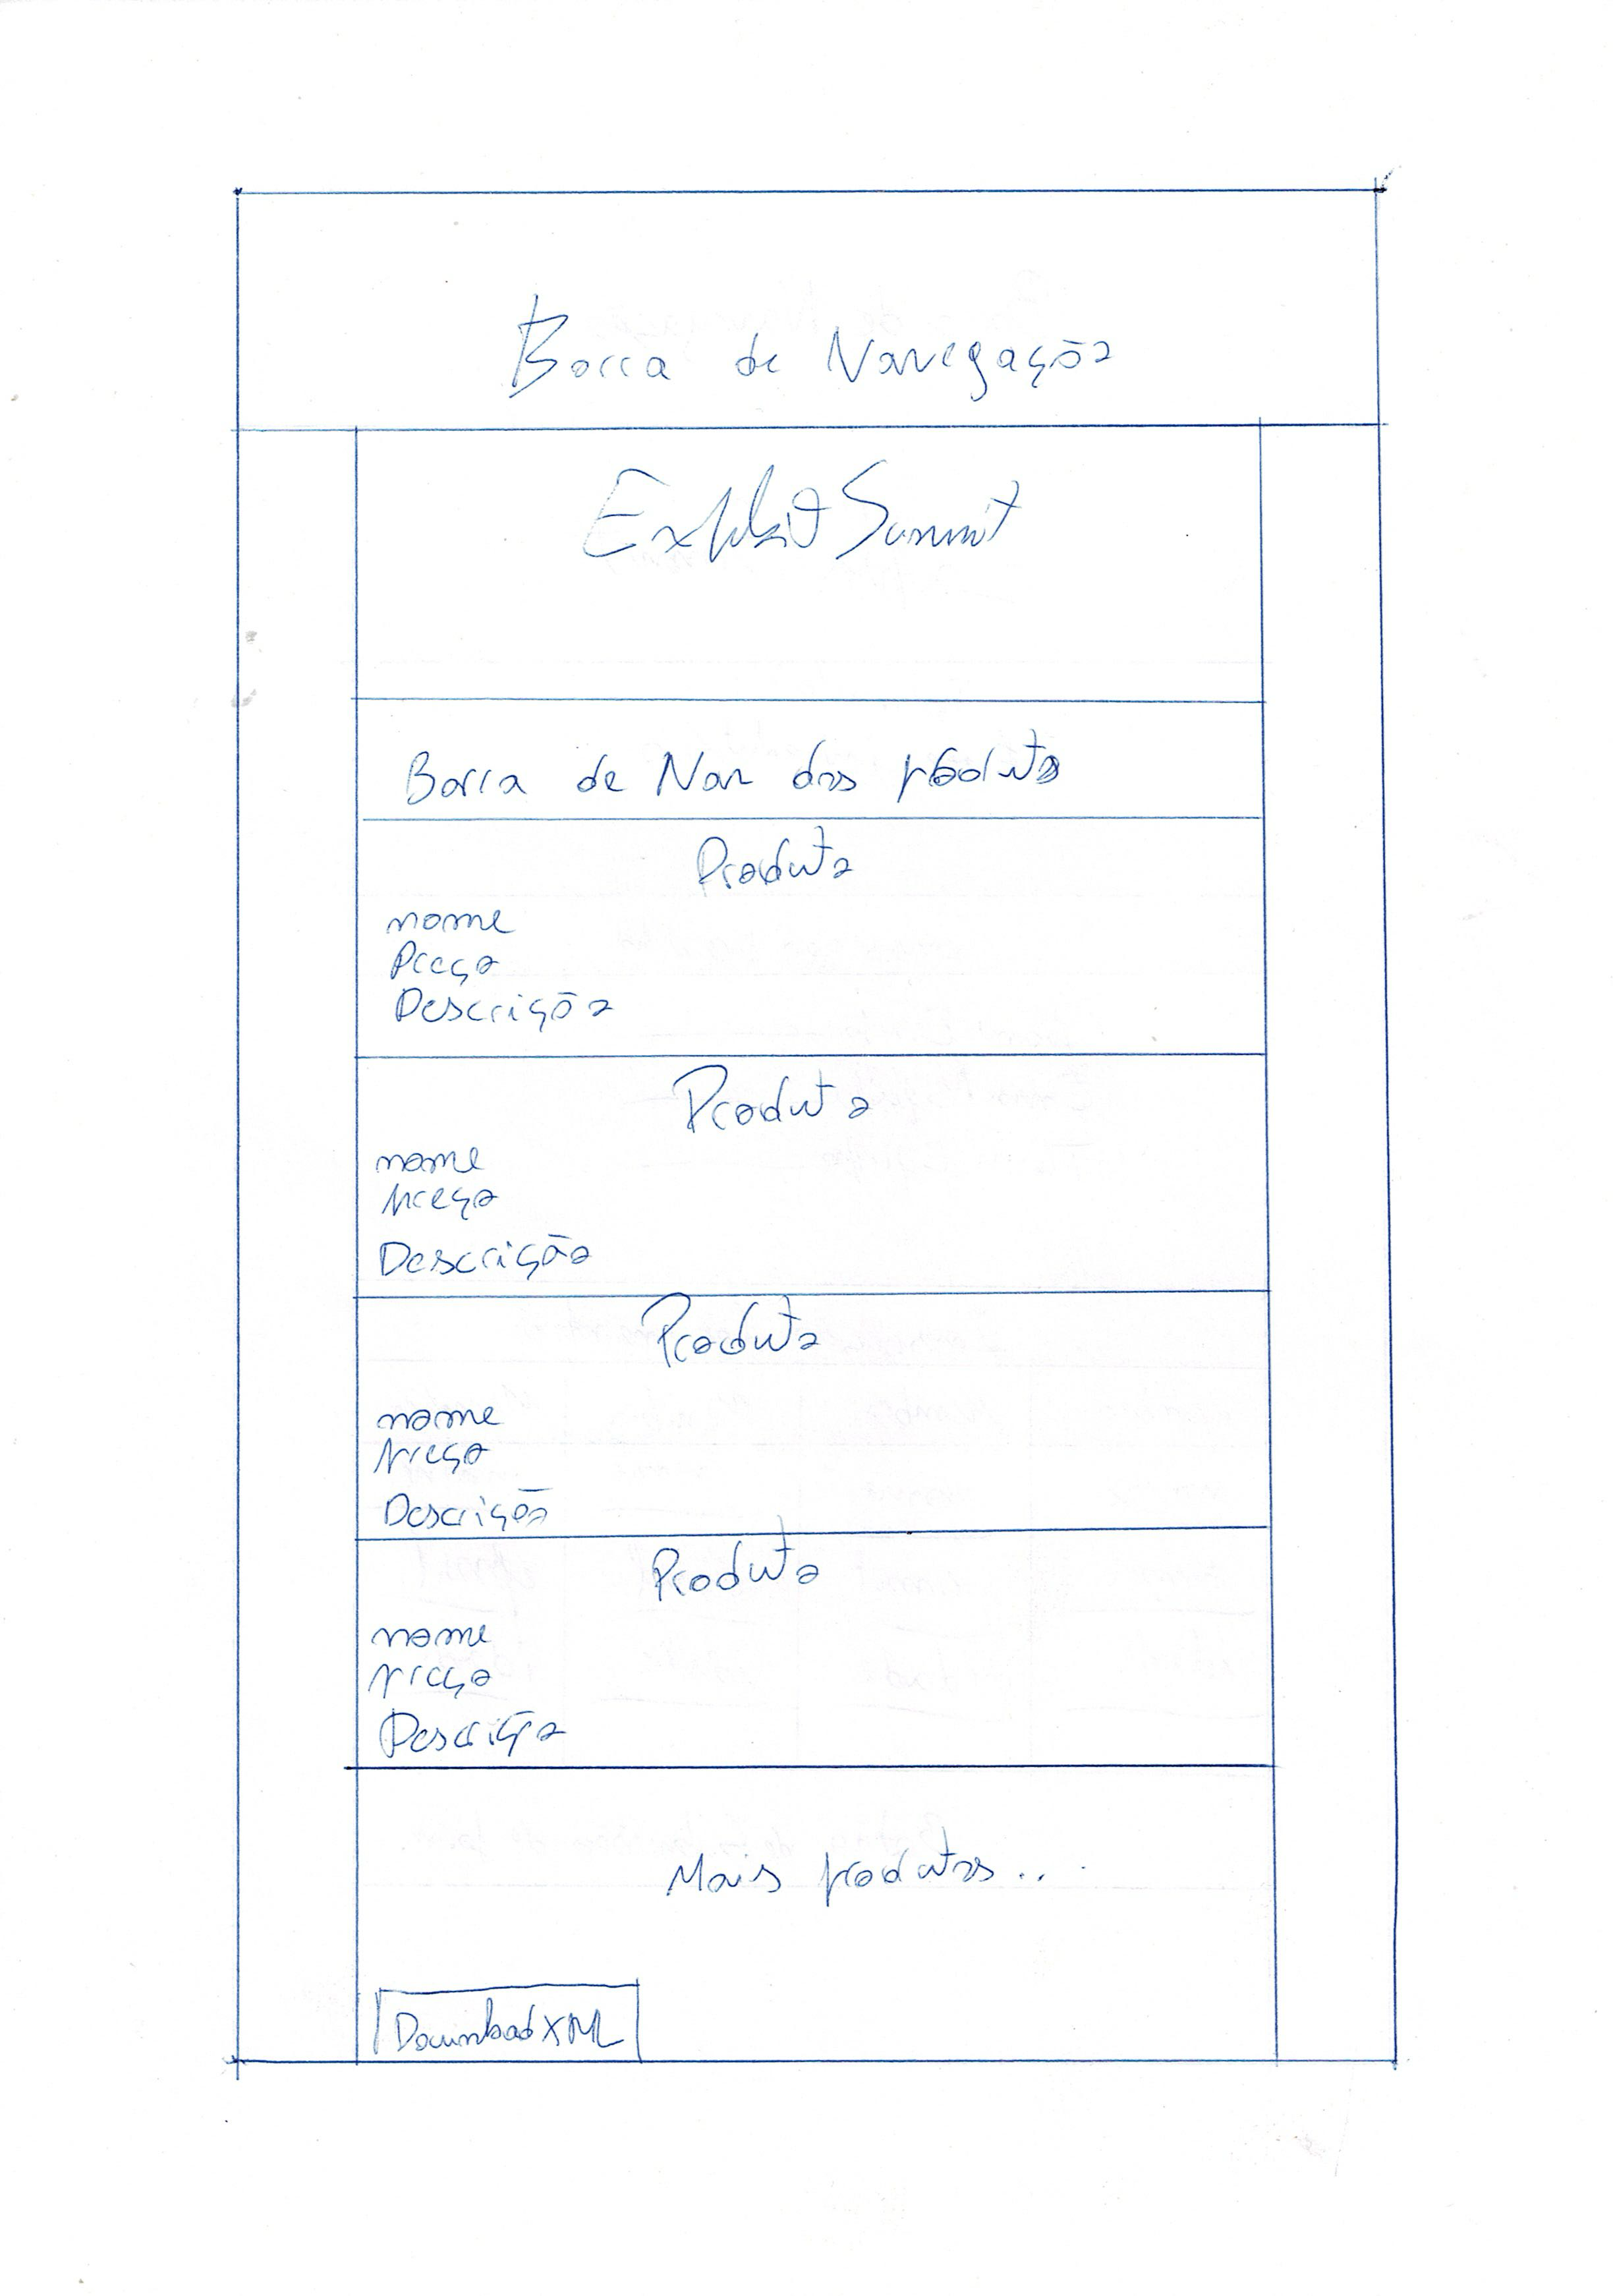 Barra de Navegação
Exploit Summit
Barra de Nav dos produtos
Produto
nome
Preço
Descrição
Produto
nome
preço
Descrição
Produto
nome
preço
Descrição
Produto
nome
preço
Descrição
Mais produtos...
Download XML